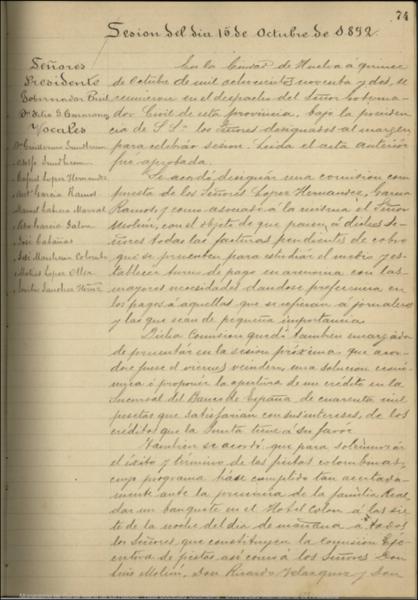 74
Sesion del dia 15 de Octubre de 1892.
Señores
Presidente
Gobernador Civil
Vocales
Dn Guillermo Sundheim
Adolfo Sundheim
Rafael Lopez Hernandez
Anto Garcia Ramos
Pedro Garcia
José Cabañas
José Marchena Colombo
Matias Lopez
Sanchez
En la Ciudad de Huelva a quince
de Octubre de mil ochocientos noventa y dos, se
reunieron en el despacho del Señor Goberna-
dor Civil de esta provincia, bajo la presiden-
cia de S. Sª los Señores designados al margen
para celebrar sesion. Leida el acta anterior
fué aprobada.
Se acordó designar una comision com-
puesta de los Señores Lopez Hernandez, Garcia
Ramos, y como asociado á la misma el Señor
Molini, con el objeto de que pasen á dichos Se-
ñores todas las facturas pendientes de cobro
que se presenten para estudiar el medio y es-
tablecer turno de pago en armonia con las
mayores necesidades dandose preferencia en
los pagos á aquellas que se refieran á jornaleros
y las que sean de pequeña importancia.
Dicha Comision quedó tambien encargada
de presentar en la sesion próxima que acor-
dose fuese el viernes venidero, una solucion
ó proponer la apertura de un crédito en la
Sucursal del Banco de España de cuarenta mil
pesetas que satisfarian con sus intereses, de los
créditos que la Junta tiene á su favor.
Tambien se acordó que para solemnizar
el éxito y término de las fiestas colombinas,
cuyo programa háse cumplido tan acertada-
mente ante la presencia de la familia Real
dar un banquete en el Hotel Colon á las sie-
te de la noche del dia de mañana á todos
los Señores que constituyen la comision Eje-
cutiva de fiestas asi como á los Señores Don
Luis Molini, Don Ricardo Velazquez y Don